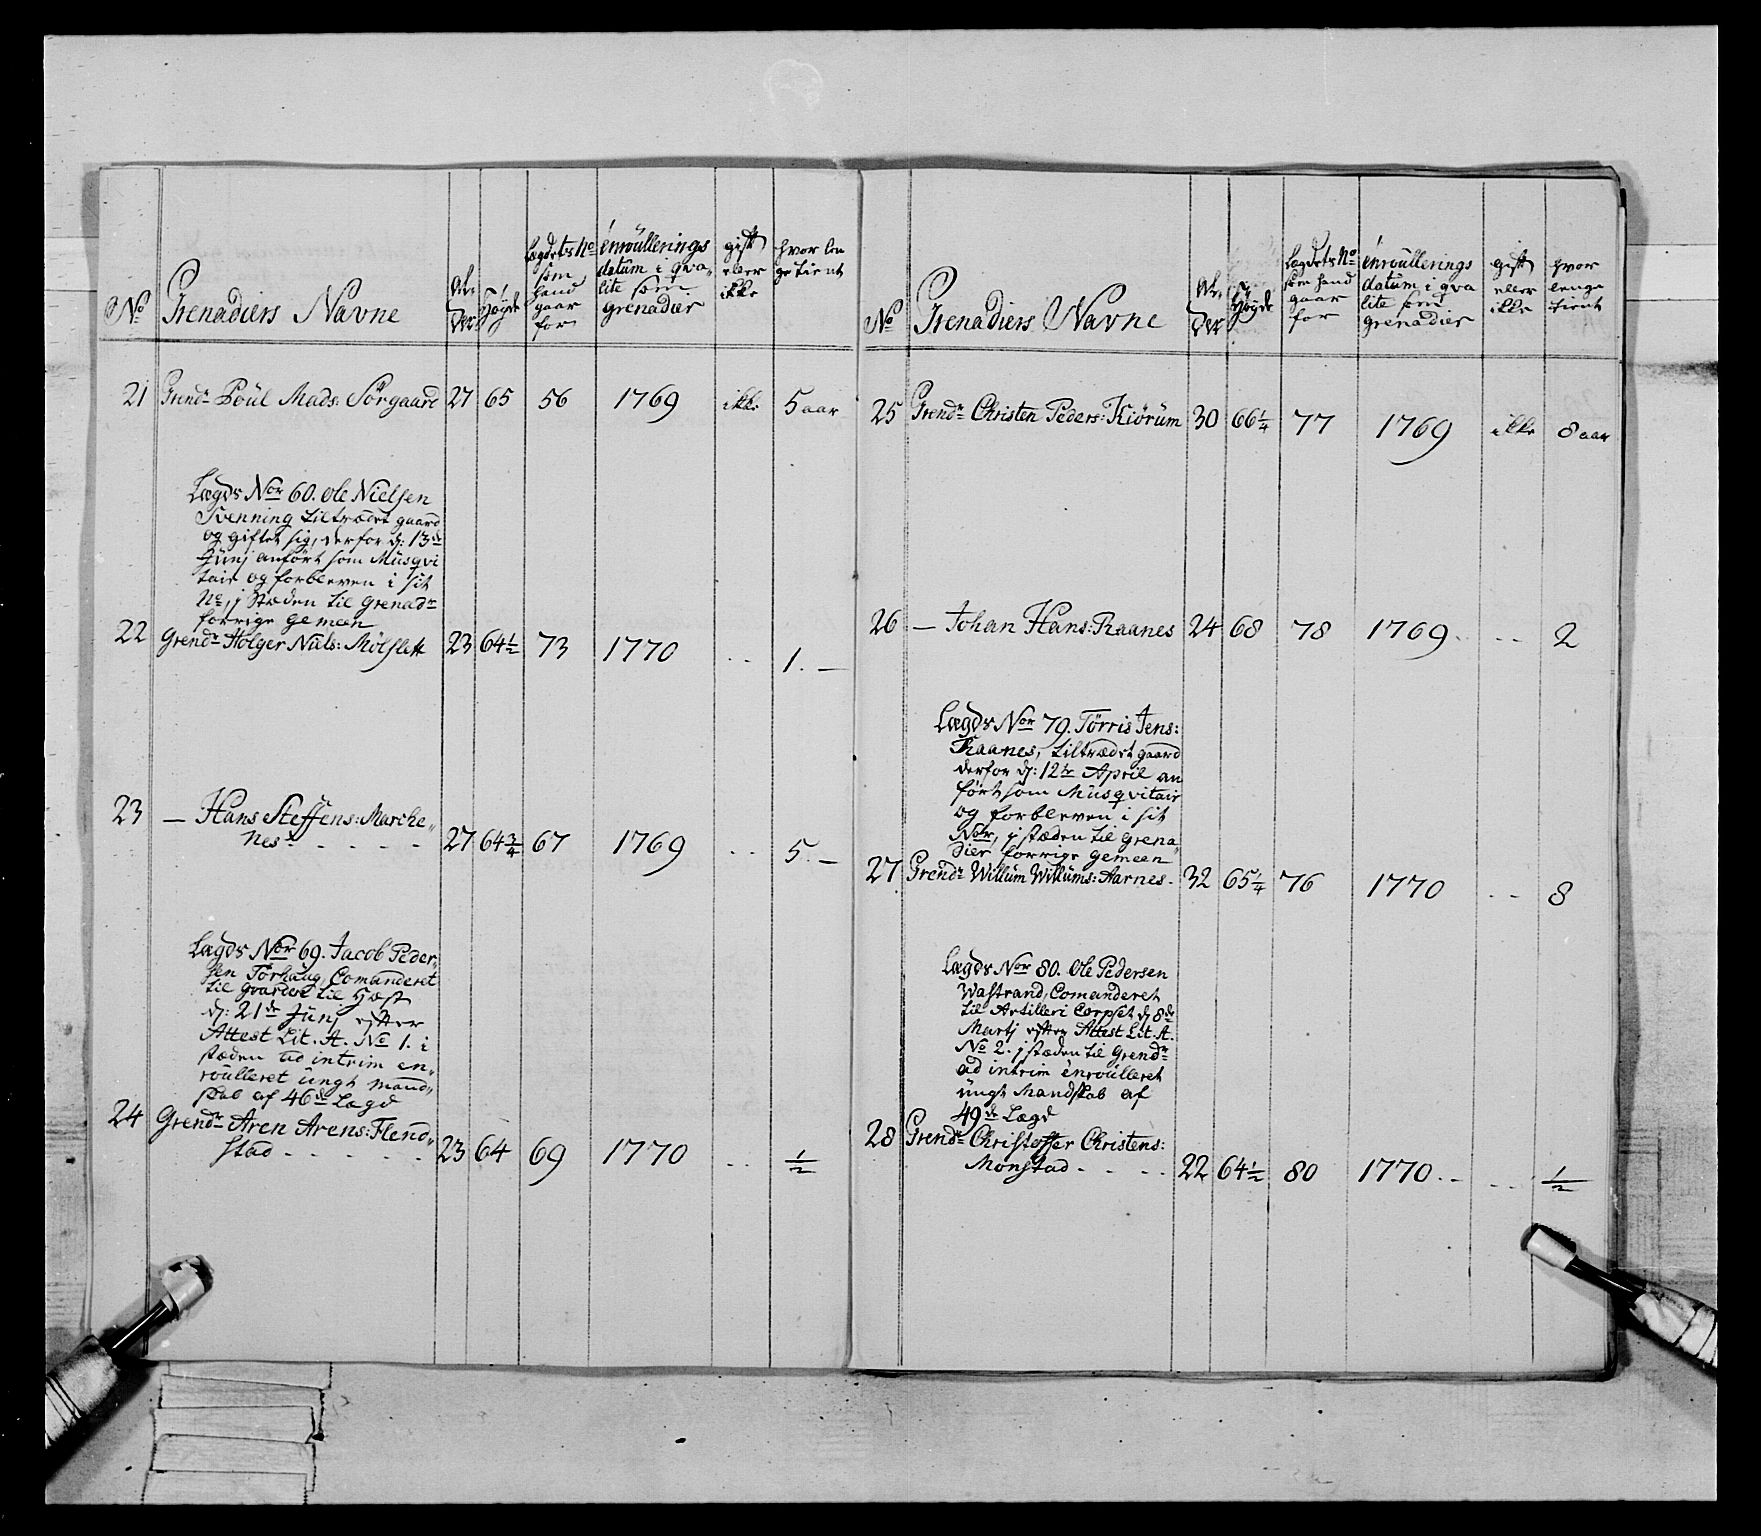 No Grenadiers Navne Al-der Höyde Lægdets No som hand gaar for enroullerings datum i qvalite som grenadier gift eller ikke hvor lenge tient
21 Grendr Poul Mads: Sörgaard 27 65 56 1769 ikke 5 aar
Lægds Nor 60. Ole Nielsen
Svenning tiltrædet gaard
og giftet sig, derfor d: 13de
Junj anfört som Musqvi
tair og forbleven i sit
No, j Stæden til Grenadr
forrige gemeen
22 Grendr Holger Niels: Mölslett 23 64½ 73 1770 - - 1. —
23 — Hans Steffens: Marche„
nes - - - - 27 64¾ 67 1769 - - 5. —
Lægds Nor 69. Jacob Peder„
sen Torhaug, Comanderet
til Gvarden til Hæst
d: 21de Junj efter
Attest Lit. A. No 1. i
stæden ad intrim en„
roulleret ungt mand„
skab af 46de Lægd
24 Grendr Aren Arens: Flend„
stad - - - - - 23 64 69 1770 - - ½
No Grenadiers Navne Al-der Höyde Lægdets No som hand gaar for enroullerings datum i qvalite som grenadier gift eller ikke hvor lenge tient
25 Grendr Christen Peders: Kiörum 30 66¼ 77 1769 ikke 8 aar
26 — Johan Hans: Raanes 24 68 78 1769 - - - 2
Lægds Nor 79. Törris Jens:
Raanes, tiltrædet gaard
derfor d: 12te April an
fört som Musqvitair
og forbleven i sit
Nor, j stæden til Grena„
dier forrige gemeen
27 Grendr Willum Willums: Aarnes - 32 65¼ 76 1770 - - 8
Lægds Nor 80. Ole Pedersen
Wastrand, Comanderet
til Artilleri Corpset d 8de
Martj efter Attest Lit. A.
No 2. j stæden til Grendr
ad intrim enroulleret
ungt Mandskab af
49de Lægd
28 Grendr Christoffer Christens:
Monstad - - - - 22 64½ 80 1770 - - - - - ½